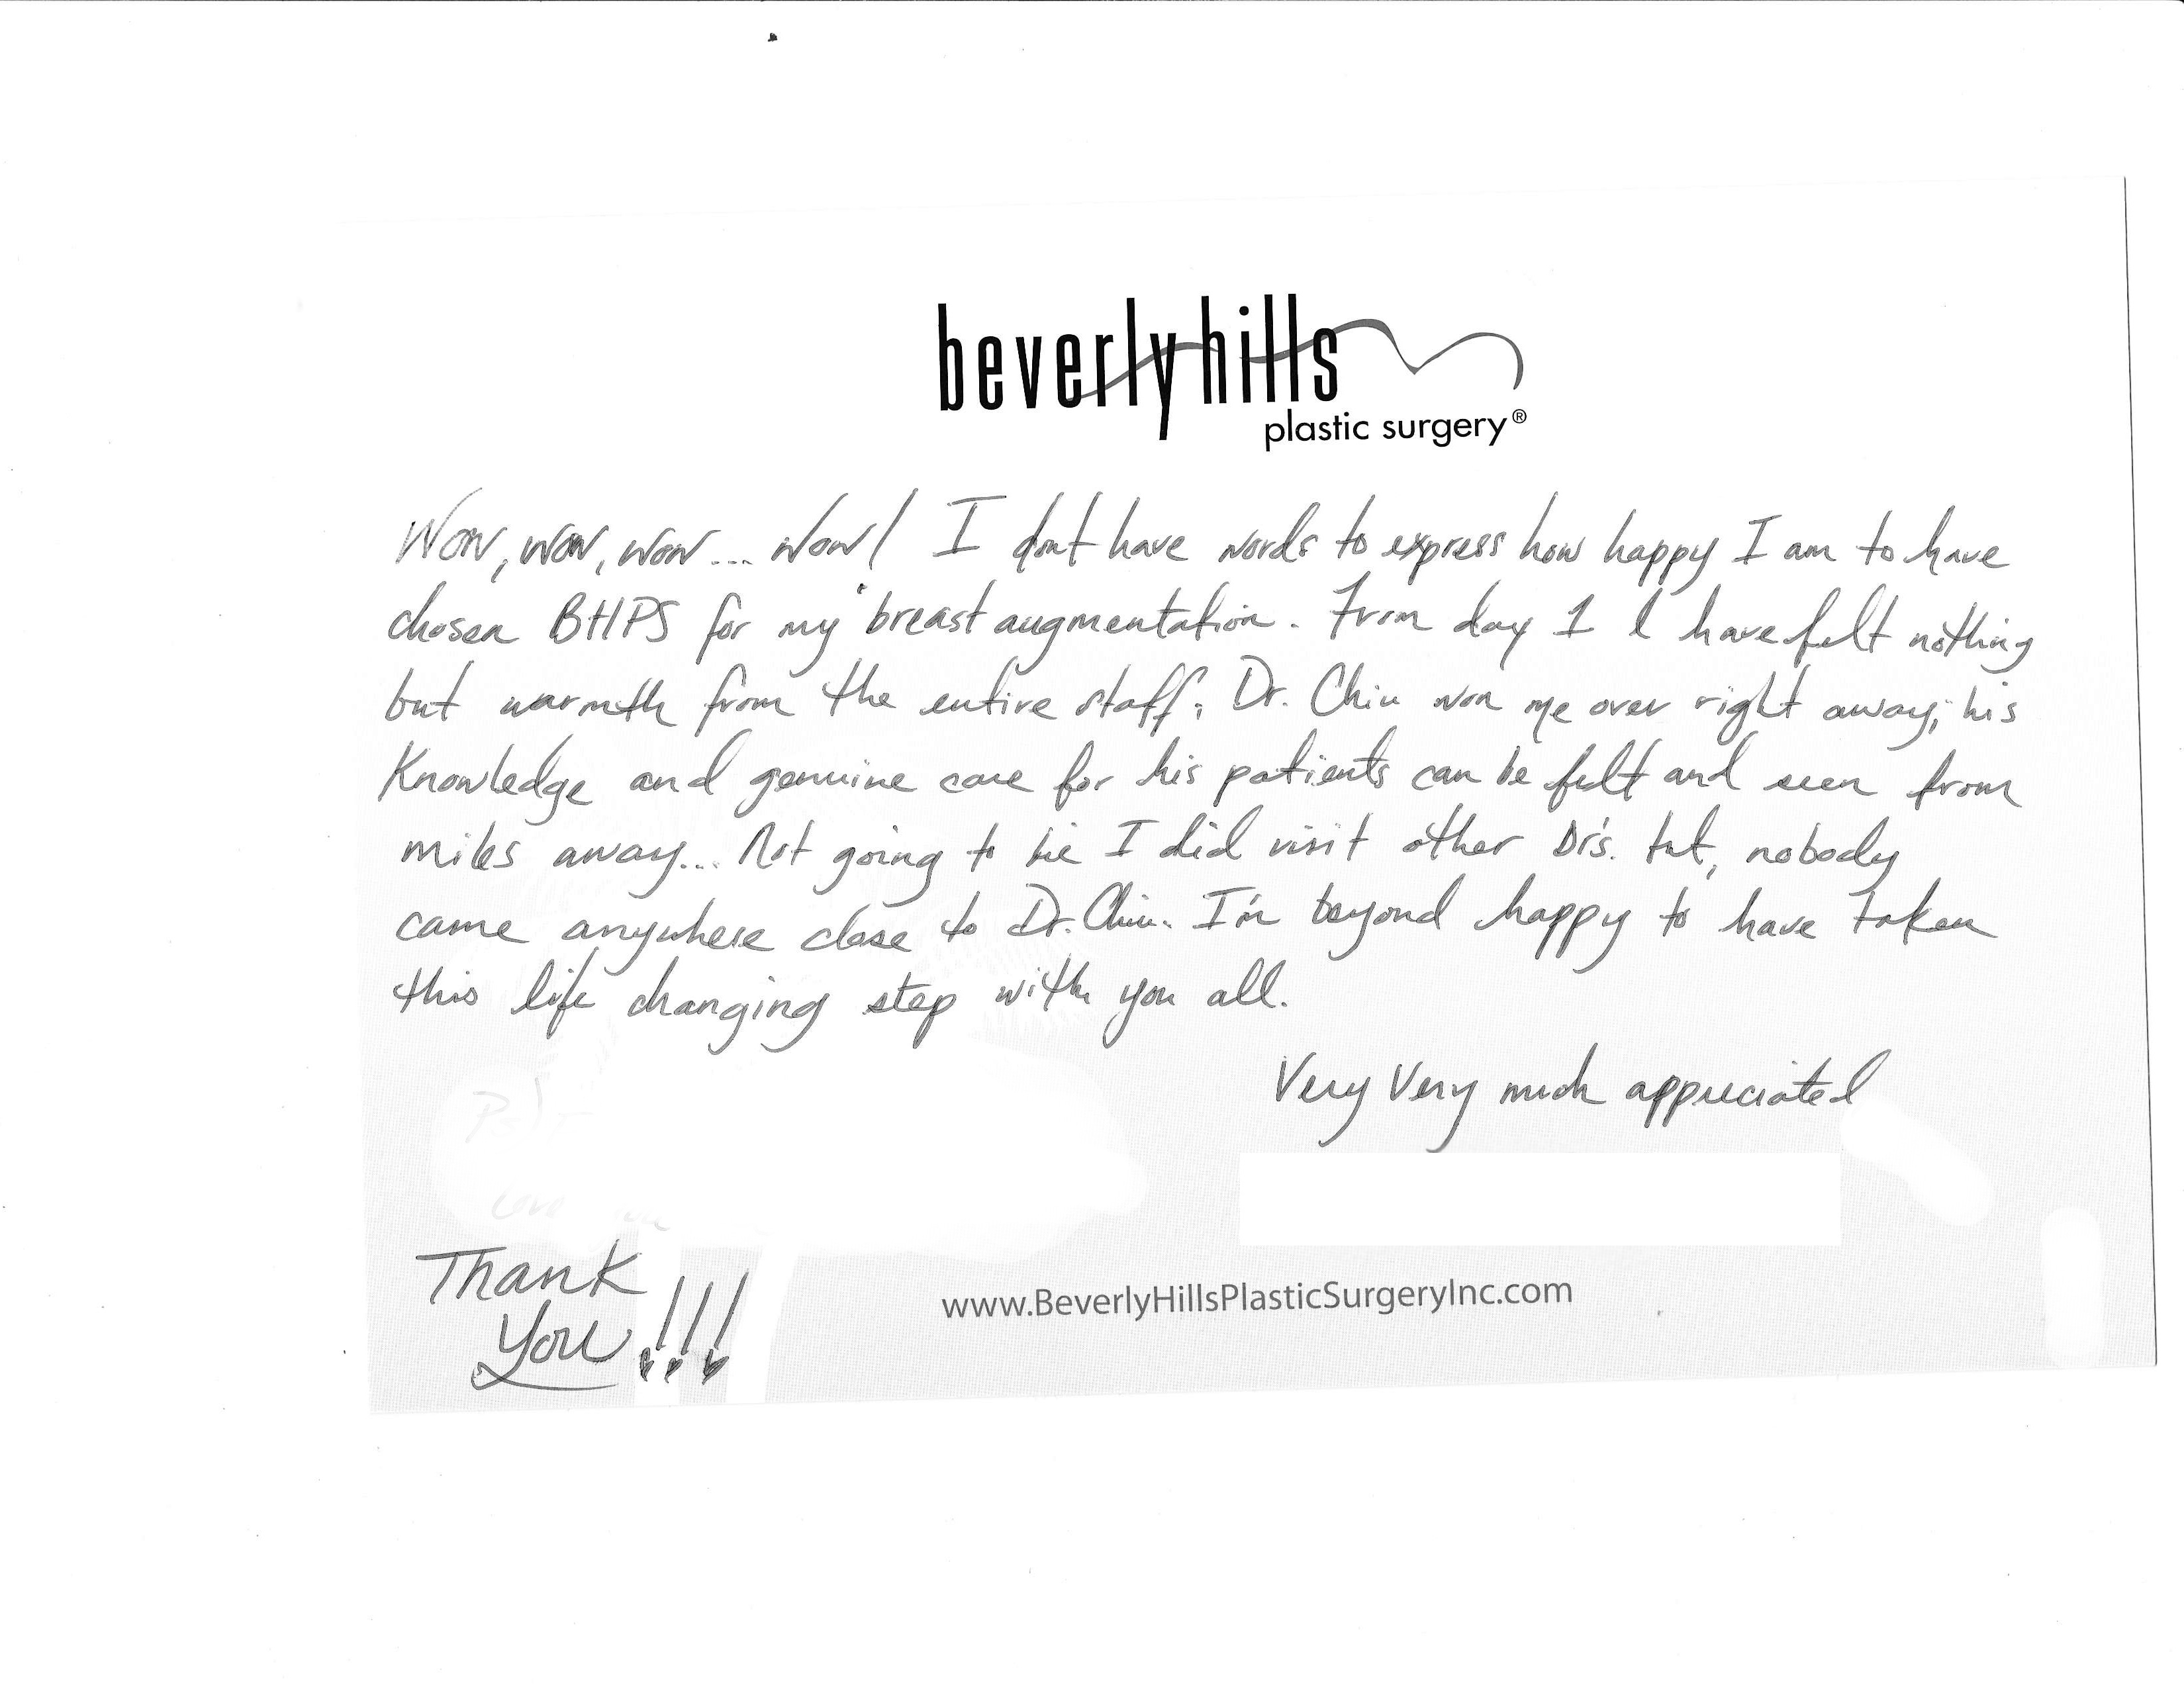 beverly hills
plastic surgery®
Wow, wow, wow... wow! I dont have words to express how happy I am to have
chosen BHPS for my breast augmentation. From day 1 I have felt nothing
but warmth from the entire staff; Dr. Chiu won me over right away; his
Knowledge and genuine care for his patients can be felt and seen from
miles away... Not going to lie I did visit other Dr's. but, nobody
came anywhere close to Dr. Chiu. I'm beyond happy to have taken
this life changing step with you all.
Very Very much appreciated
Thank
You!!!
www.BeverlyHillsPlasticSurgeryInc.com